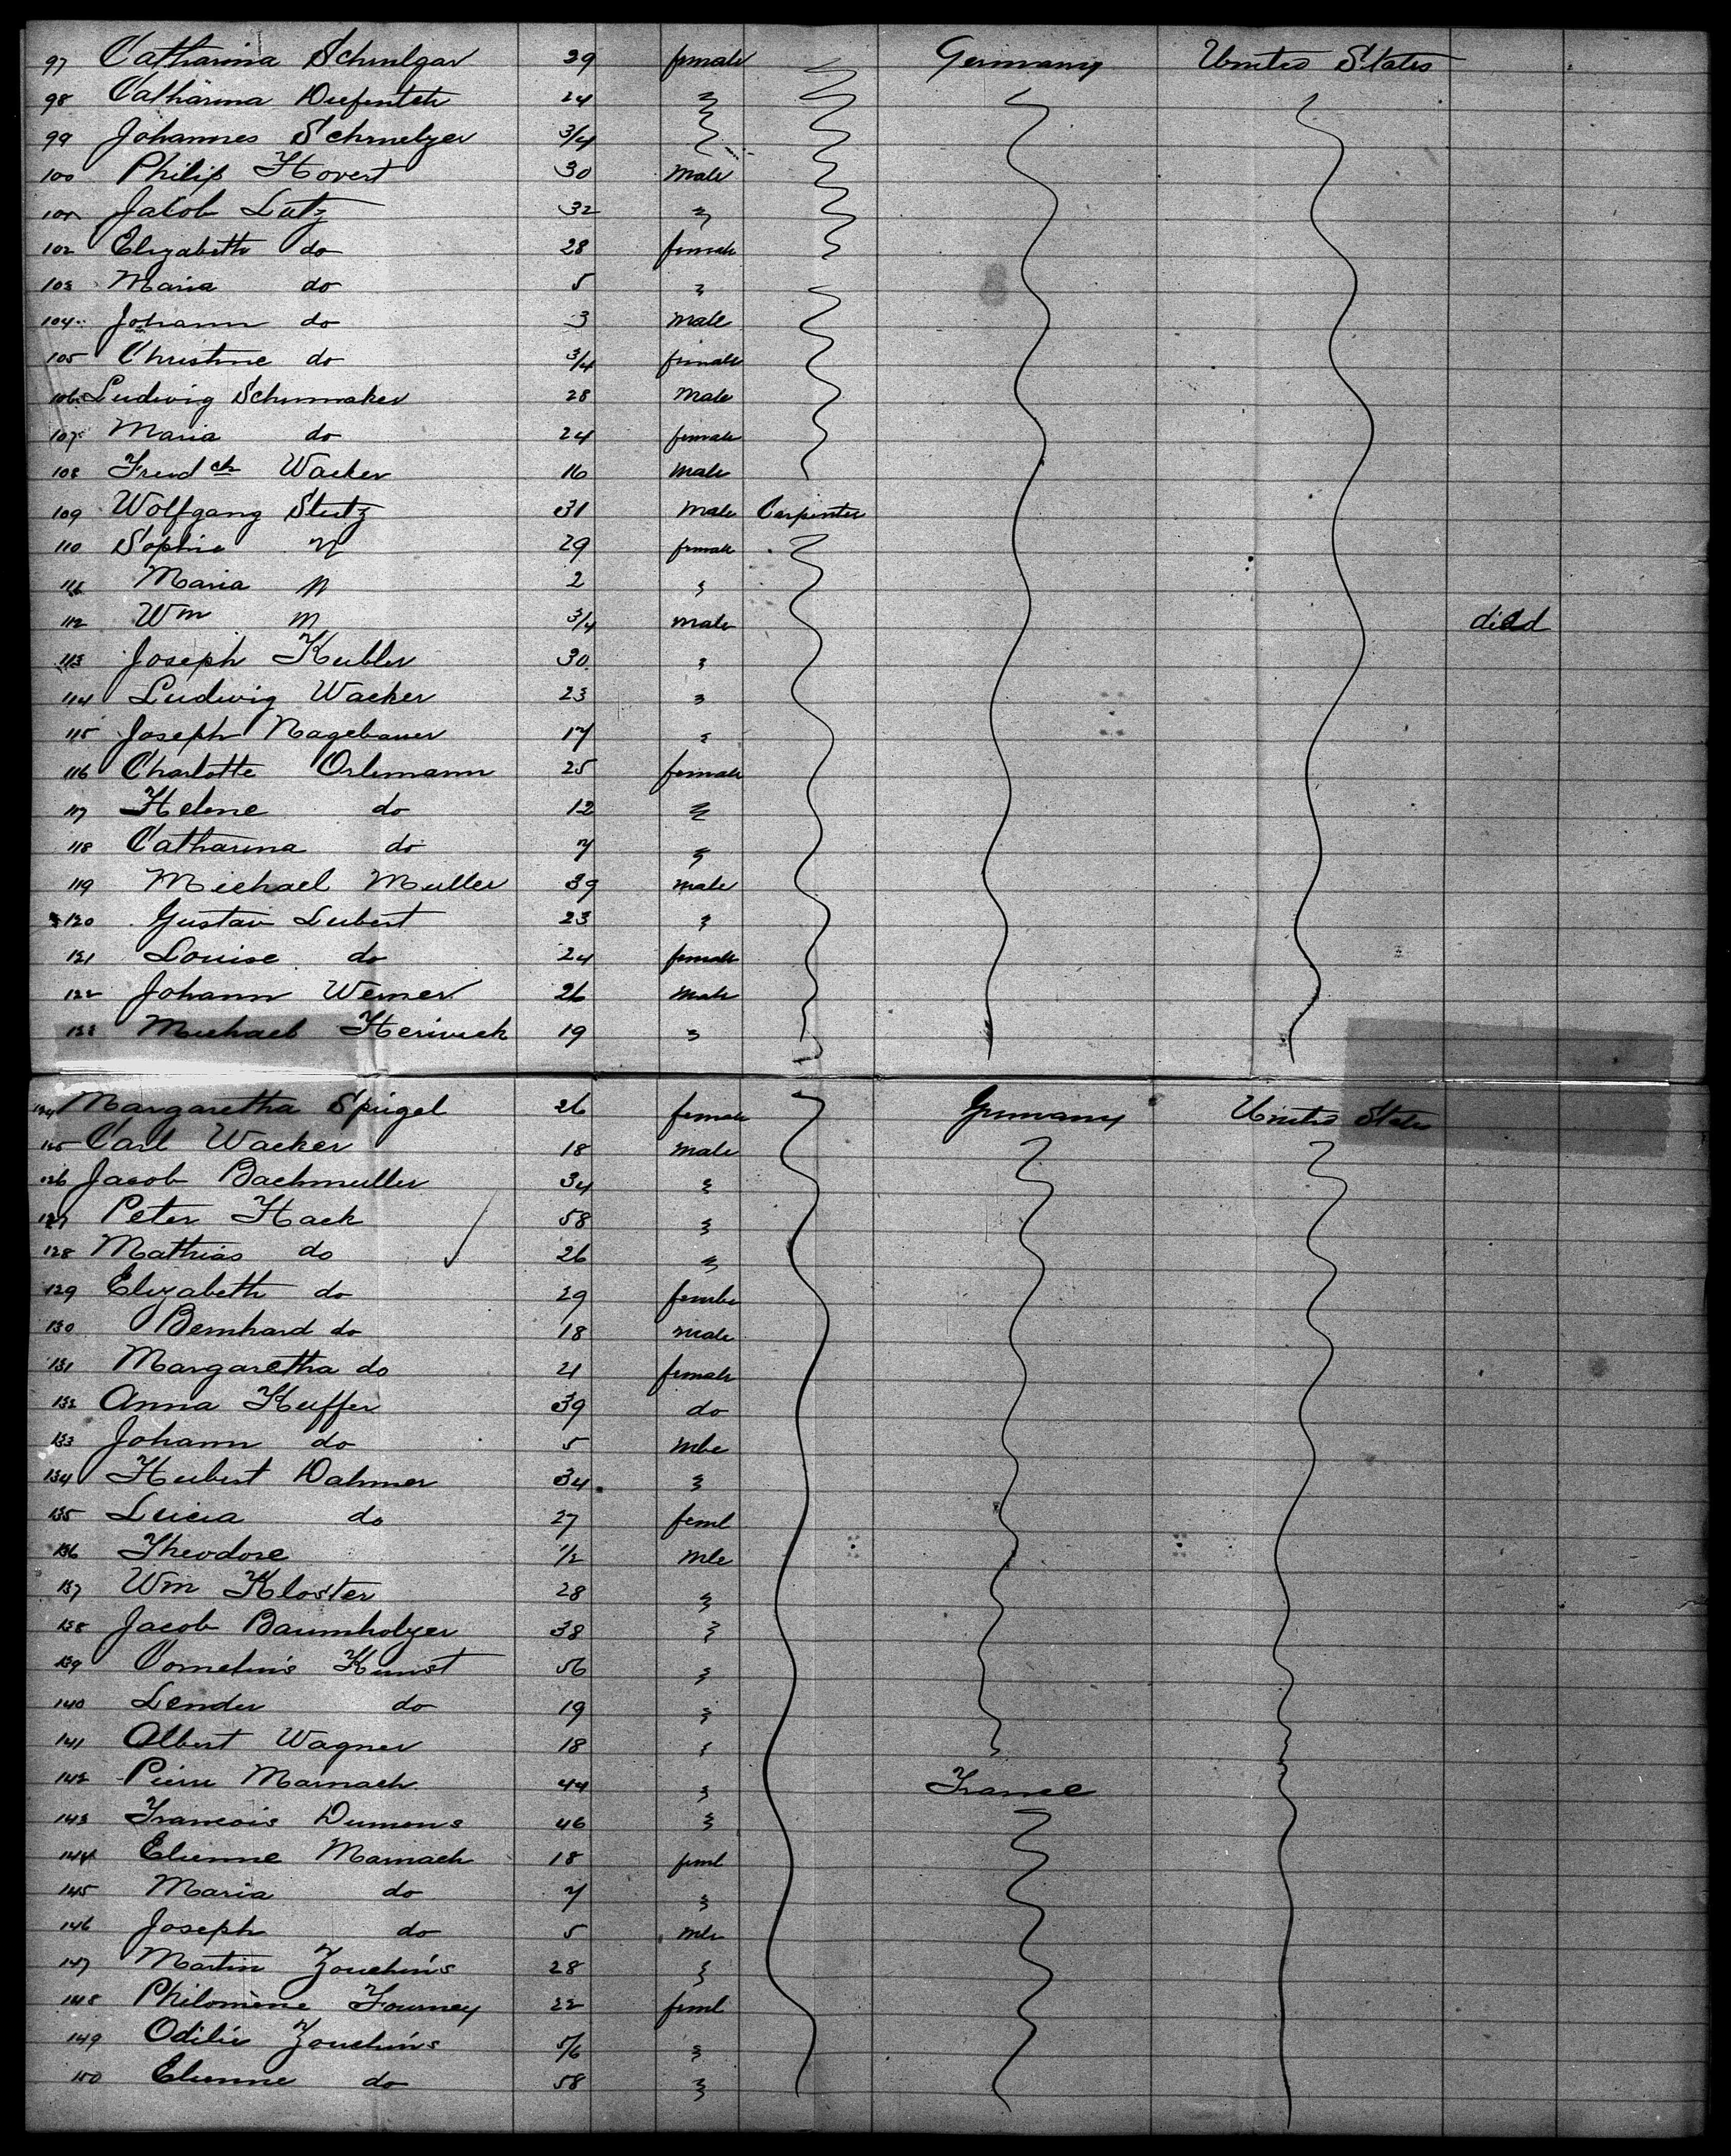 97 Catharina Schmelgar 39 female Germany United States
98 Catharina 24 "
99 Johannes Schmelzer 3/4 "
100 Philip Hovert 30 Male
101 Jacob Lutz 32 "
102 Elizabeth do 28 female
103 Maria do 5 "
104 Johann do 3 Male
105 Christine do 3/4 female
106 Ludwig Schumaker 28 Male
107 Maria do 24 female
108 Fried ch Wacker 16 Male
109 Wolfgang Stutz 31 Male Carpenter
110 Sophie " 29 female
111 Maria " 2 "
112 Wm " 3/4 male died
113 Joseph Kubler 30 "
114 Ludwig Wacker 23 "
115 Joseph Nagebauer 17 "
116 Charlotte Orlemann 25 female
117 Helene do 12 "
118 Catharina do 7 "
119 Michael Muller 39 male
120 Gustav Lubert 23 "
121 Louise do 24 female
122 Johann Werner 26 male
123 Michael 19 "
124 Margaretha Spigel 26 female Germany United States
125 Carl Wacker 18 male
126 Jacob Bachmuller 34 "
127 Peter Hack 58 "
128 Mathias do 26 "
129 Elizabeth do 29 female
130 Bernhard do 18 male
131 Margaretha do 21 female
132 Anna Kuffer 39 do
133 Johann do 5 mle
134 Hubert Dahmer 34 "
135 Lucia do 27 feml
136 Theodore 1/2 mle
137 Wm Kloster 28 "
138 Jacob Baumholzer 38 "
139 Cornelius Kunst 56 "
140 Lender do 19 "
141 Albert Wagner 18 "
142 Pierre Marnach 44 " France
143 Francois Dumons 46 "
144 Etienne Marnach 18 feml
145 Maria do 7 "
146 Joseph do 5 mle
147 Martin Zouchins 28 "
148 Philomene Fourney 22 feml
149 Odilie Zouchins 5/6 "
150 Etienne do 58 "